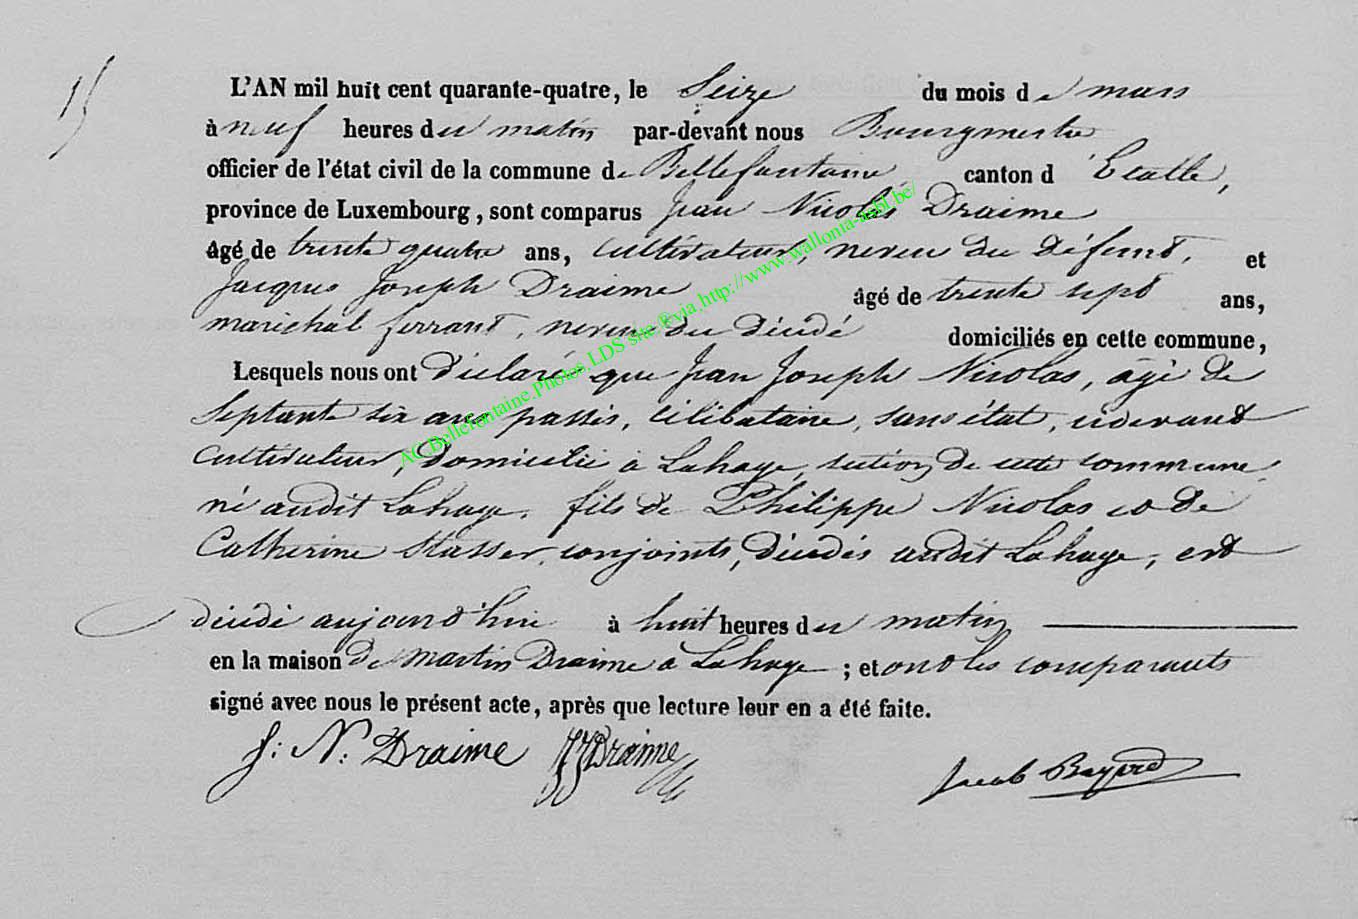 15
L'AN mil huit cent quarante-quatre, le Seize du mois de mars
à neuf heures du matin par-devant nous Bourgmestre
officier de l'état civil de la commune de Bellefontaine, canton d'Etalle,
province de Luxembourg, sont comparus Jean Nicolas Draime
âgé de trente quatre ans, cultivateur, neveu du défunt, et
Jacques Joseph Draime âgé de trente sept ans,
maréchal ferrant, neveu du décédé domiciliés en cette commune,
Lesquels nous ont déclaré que Jean Joseph Nicolas, âgé de
Septante six ans passés, célibataire, sans état, cidevant
cultivateur, domicilié à Lahage, section de cette commune,
né audit Lahage, fils de Philippe Nicolas et de
Catherine Stasser, conjoints, décédés audit Lahage, est
décédé aujourd'hui à huit heures du matin
en la maison de Martin Draime à Lahage ; et ont les comparants
signé avec nous le présent acte, après que lecture leur en a été faite.
J: N: Draime JJ Draime
Jacob Bayard
AC.Bellefontaine.Photos.LDS site ®via http://www.wallonia-asbl.be/